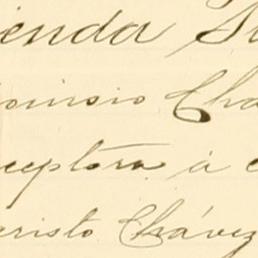 ienda S
ionisio Cha
ceptora á
aristo Chávez